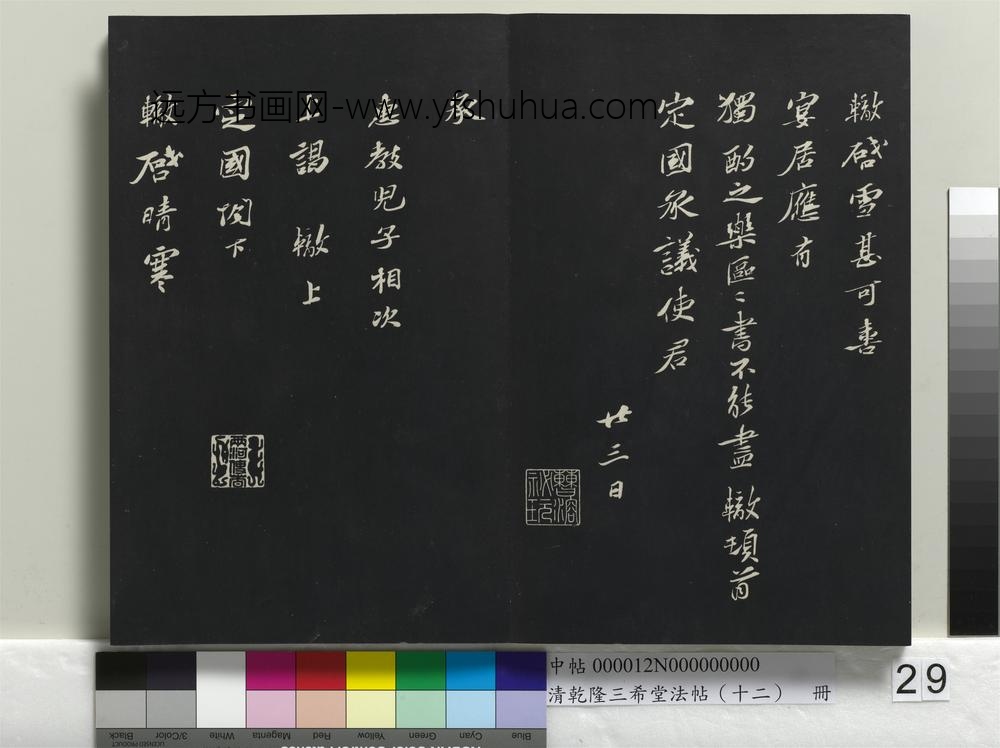 轍啓雪甚可喜
宴居應有
獨酌之樂區〻書不能盡 轍頓首
定國承議使君
廿三日
曹溶
秘玩
承
惠教兒子相次
上謁 轍上
定國閤下
轍啓晴寒
远方书画网-www.yfshuhua.com
中帖 000012N000000000
清乾隆三希堂法帖（十二） 冊
29
Black
3/Color
White
Magenta
Red
Yellow
Green
Cyan
Blue